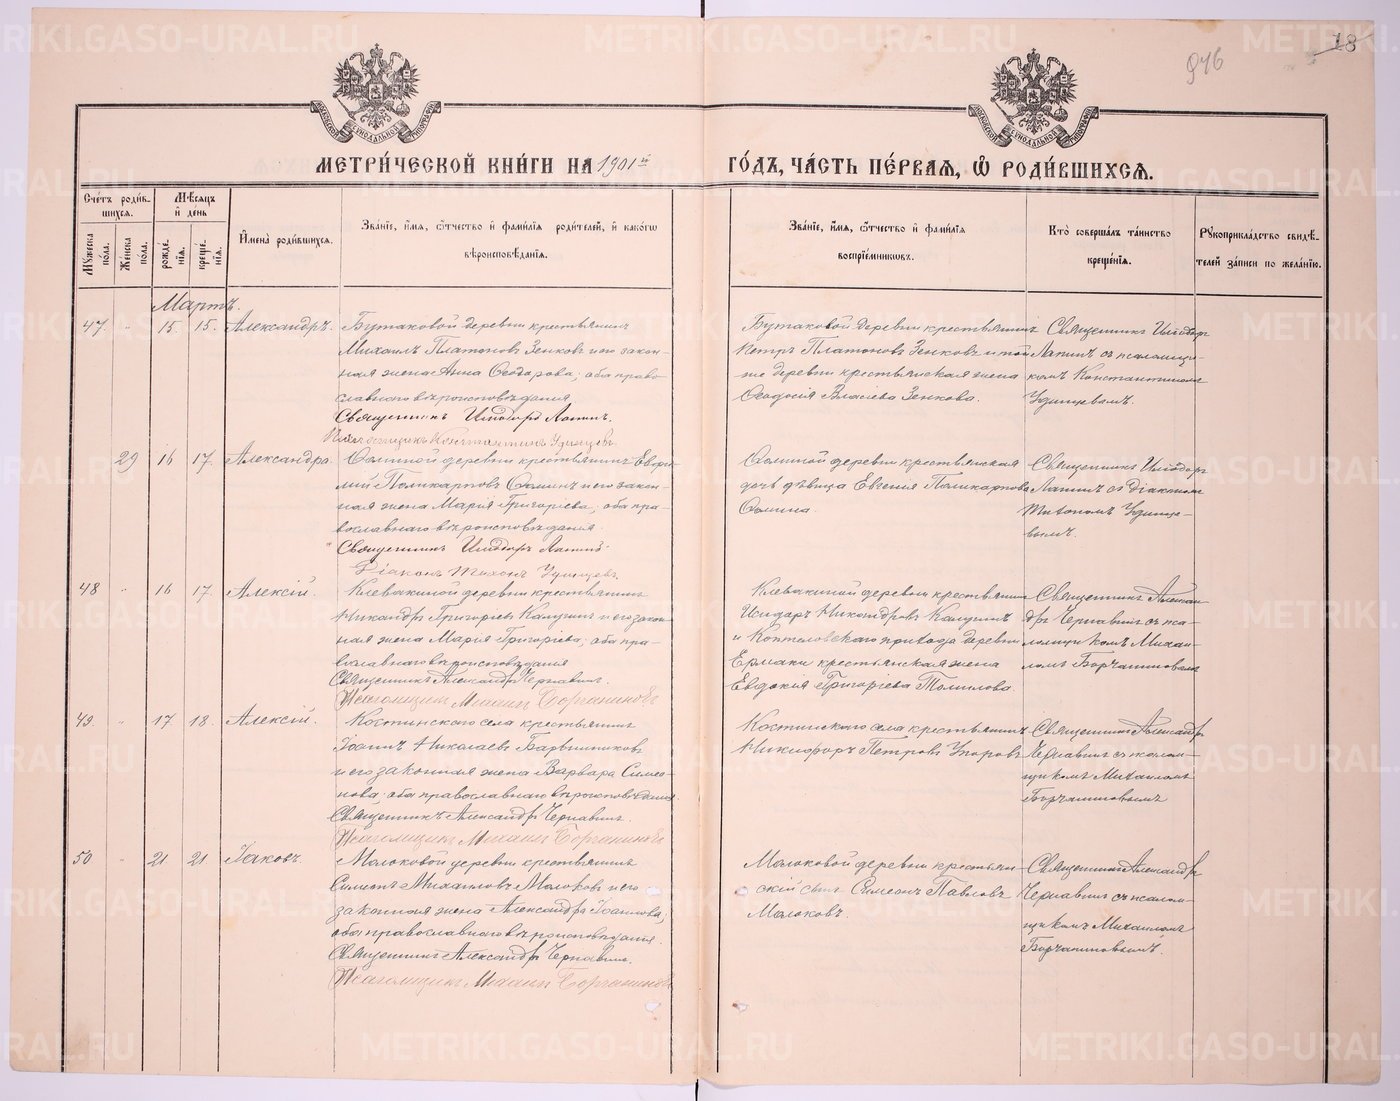 946
18
МЕТРИ́ЧЕСКОЙ КНИ́ГИ НА 1901й ГО́ДЪ, ЧА́СТЬ ПЕ́РВАѦ, Ѽ РОДИ́ВШИХСѦ.
Сче́тъ роди́в-
шихся.
Мꙋ́жеска по́ла.
Же́нска по́ла.
Мѣ́сяцъ
и́ день
рожде́нїя.
креще́нїя.
И҆мена̀ роди́вшихся.
Зва́нїе, и́мя, ѻ҆́тчество и҆ фами́лїя роди́телей, и҆ како́гѡ
вѣроисповѣ́данїя.
Зва́нїе, и́мя, ѻ҆́тчество и҆ фами́лїя
воспрїе́мниковъ.
Кто̀ соверша́лъ та́инство
креще́нїя.
Рꙋкоприкла́дство свидѣ́-
телей за́писи по жела́нїю.
Мартъ.
47. " 15 15. Александръ.
Бутаковой деревни крестьянинъ
Михаилъ Платоновъ Зенковъ и его закон-
ная жена Анна Ѳеодорова; оба право-
славнаго вѣроисповѣданія
Священникъ Илїодоръ Лапинъ.
Псаломщикъ Константинъ Удинцевъ.
Бутаковой деревни крестьянинъ
Петръ Платоновъ Зенковъ и той
же деревни крестьянская жена
Ѳеодосія Власіева Зенкова.
Священникъ Иліодоръ
Лапинъ съ псаломщи-
комъ Константиномъ
Удинцевымъ.
29 16 17. Александра.
деревни крестьянинъ
Поликарповъ и его закон-
ная жена Марія Григоріева, оба пра-
вославнаго вѣроисповѣданія.
Священникъ Иліодоръ Лапинъ.
Діаконъ Тихонъ Удинцевъ.
деревни крестьянская
дочь дѣвица Евгенія Поликарпова
Священникъ Иліодоръ
Лапинъ съ діакономъ
Тихономъ Удинце-
вымъ.
48 " 16 17. Алексій.
Клевакиной деревни крестьянинъ
Никандръ Григоріевъ Калугинъ и его закон-
ная жена Марія Григоріева; оба пра-
вославнаго вѣроисповѣданія
Священникъ Александръ Чернавинъ.
Псаломщикъ Михаилъ Борчаниновъ
Клевакиной деревни крестьянинъ
Исидоръ Никандровъ Калугинъ
и Коптеловскаго прихода деревни
Ермаки крестьянская жена
Евдокія Григоріева Томилова
Священникъ Алексан-
дръ Чернавинъ съ пса-
ломщикомъ Михаи-
ломъ Борчаниновымъ
49. " 17 18. Алексій.
Костинскаго села крестьянинъ
Іоаннъ Николаевъ Барышниковъ
и его законная жена Варвара Симео-
нова; оба православнаго вѣроисповѣданія
Священникъ Александръ Чернавинъ.
Псаломщикъ Михаилъ Борчаниновъ
Костинскаго села крестьянинъ
Никифоръ Петровъ Упоровъ
Священникъ Александръ
Чернавинъ съ псалом-
щикомъ Михаиломъ
Борчаниновымъ
50 " 21 21 Іаковъ.
Молоковой деревни крестьянинъ
Симеонъ Михаиловъ Молоковъ и его
законная жена Александра Іоаннова,
оба православнаго вѣроисповѣданія.
Священникъ Александръ Чернавинъ.
Псаломщикъ Михаилъ Борчаниновъ
Молоковой деревни крестьян-
скій сынъ Симеонъ Павловъ
Молоковъ.
Священникъ Александръ
Чернавинъ съ псалом-
щикомъ Михаиломъ
Борчаниновымъ.
METRIKI.GASO-URAL.RU